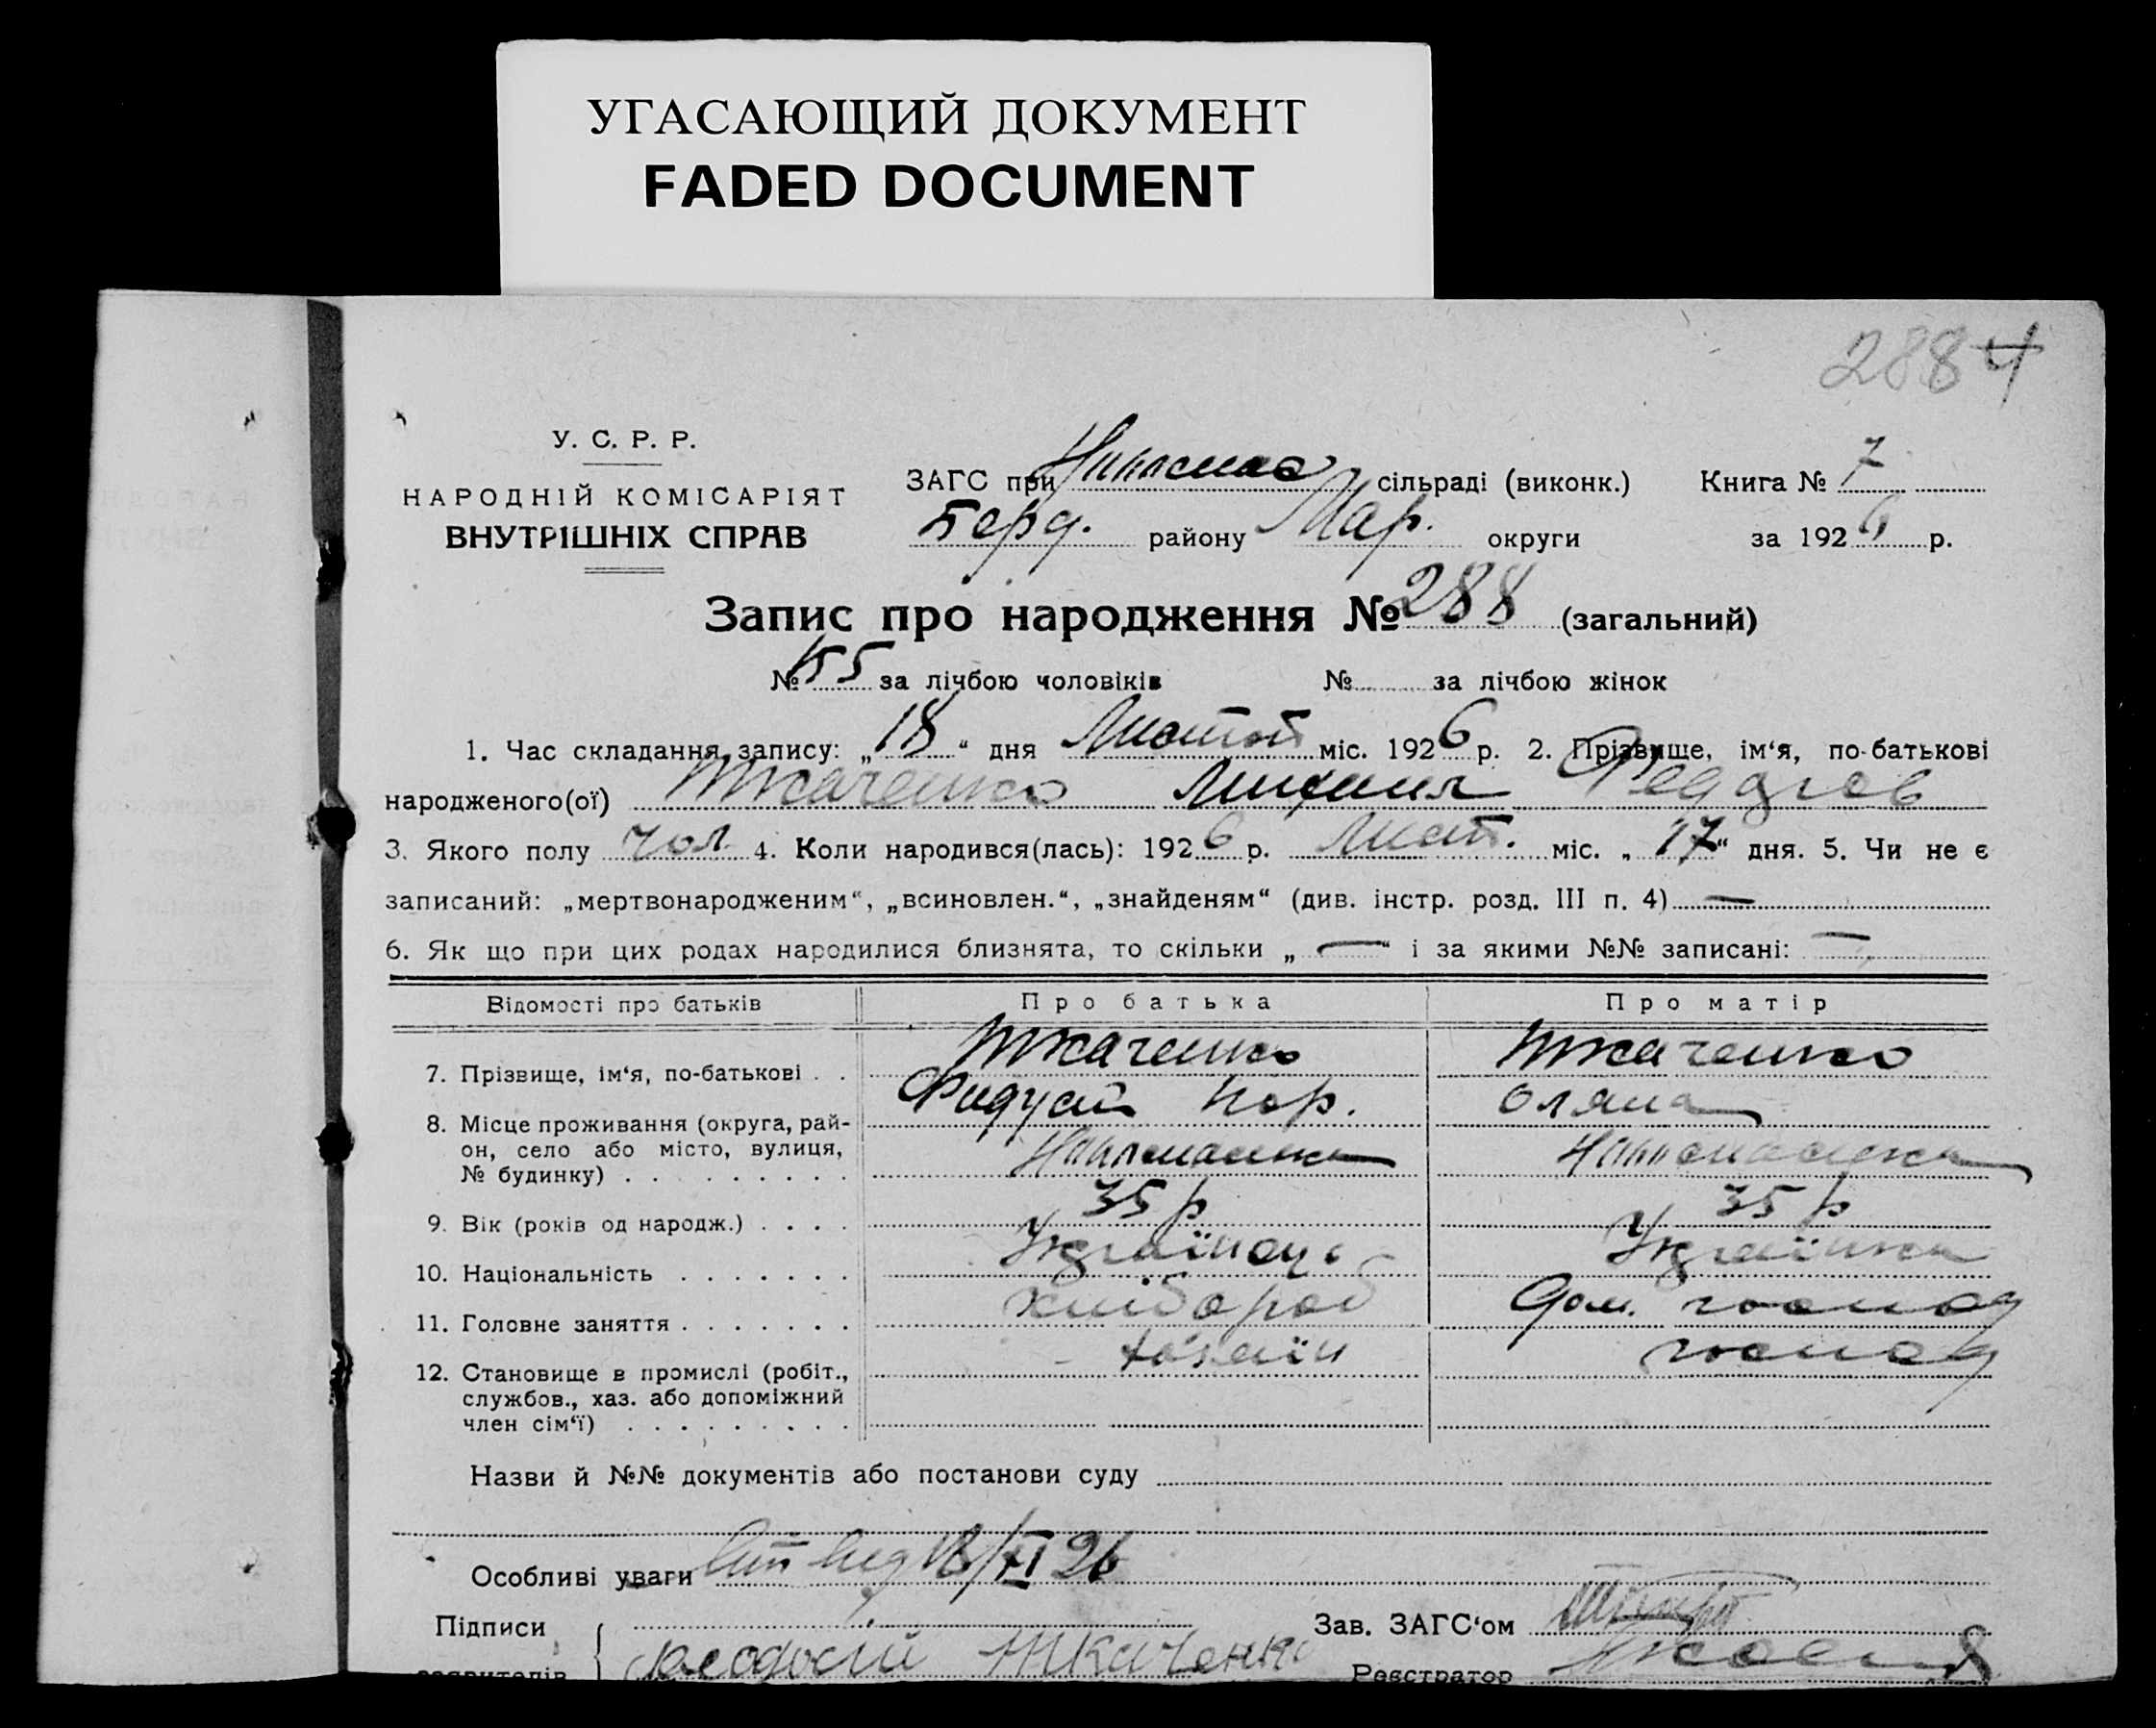 УГАСАЮЩИЙ ДОКУМЕНТ
FADED DOCUMENT
288 4
У. С. Р. Р.
НАРОДНІЙ КОМІСАРІЯТ
ВНУТРІШНІХ СПРАВ
ЗАГС при сільраді (виконк.) Книга № 7
Берд. району Мар. округи за 1926 р.
Запис про народження № 288 (загальний)
№ 155 за лічбою чоловіків № за лічбою жінок
1. Час складання запису: „18“ дня Листоп міс. 1926 р. 2. Прізвище, ім‘я, по-батькові
народженого(ої) Ткаченко Михаил
3. Якого полу чол. 4. Коли народився(лась): 1926 р. Лист. міс. „17“ дня. 5. Чи не є
записаний: „мертвонародженим“, „всиновлен.“, „знайденям“ (див. інстр. розд. III п. 4) —
6. Як що при цих родах народилися близнята, то скільки „—“ і за якими №№ записані: —
Відомості про батьків Про батька Про матір
7. Прізвище, ім‘я, по-батькові . . Ткаченко Ткаченко
Кор. Оляна
8. Місце проживання (округа, рай-
он, село або місто, вулиця,
№ будинку) . . . . . . . . .
9. Вік (років од народж.) . . . . 35 р 35 р
10. Національність . . . . . . . Українец Українка
11. Головне заняття . . . . . . . хлібороб Дом. господ
12. Становище в промислі (робіт., хозяїн господ
службов., хаз. або допоміжний
член сім‘ї) . . . . . . . . .
Назви й №№ документів або постанови суду
Особливі уваги 18/XI 26
Підписи Зав. ЗАГС‘ом
заявителів Феодосій Ткаченко Реєстратор